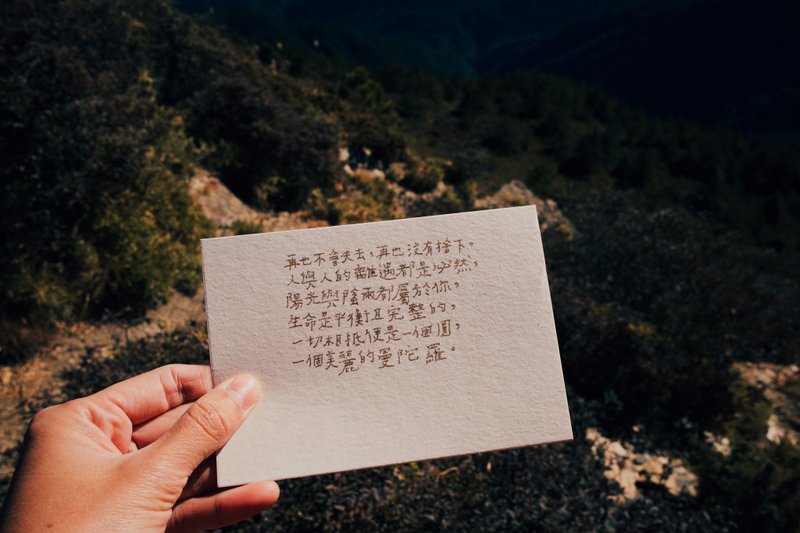 再也不會失去，再也沒有捨下。
人與人的離遇都是必然，
陽光與陰雨都屬於你，
生命是平衡且完整的，
一切相抵便是一個圓，
一個美麗的曼陀羅。